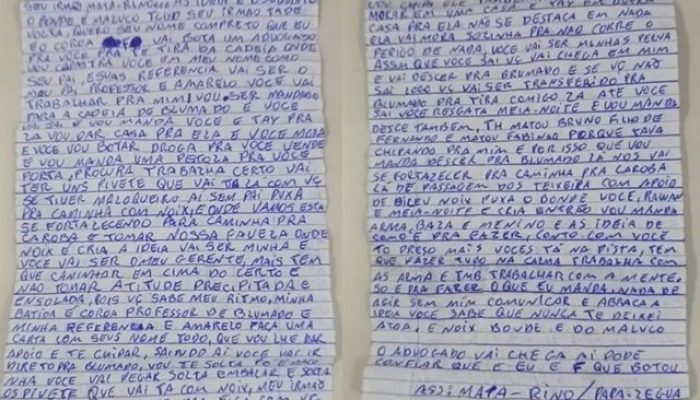 SEU IRMÃO MATA-RINO
O BONDE E MALUCO TUDO SEU IRMÃO TADE
VOLTA, QUERO SEU NOME COMPRETO QUE EU
E O COROA VAI BOTA UM ADVOGADO
PRA VOCÊ PRA TE TIRA DA CADEIA ONDE
VOU CADASTRA VOCÊ EM MEU NOME COMO
SEU PAI, ESUAS REFERENCIA VAI SER O
MEU PAI PROFESSOR E AMARELO VOCÊ VAI
TRABALHAR PRA MIM VOU SER MANDADO
PARA A CADEIA DE BLUMADO E VOCÊ
VAI SAI E VOU MANDA VOCÊ E TAY PRA
LA VOU DAR CASA PRA ELA E VOCÊ MORA
E VOCÊ VOU BOTAR DROGA PRA VOCÊ VENDE
E VOU MANDA UMA PETOLA PRA VOCÊ
PORTA, PROCURA TRABALHA CERTO VAI
TER UNS PIVETE QUE VAI TA LA COM VC
SE TIVER MALOQUEIRO AI SEM PAI PUXA
PRA CAMINHA COM NOIX IS ONDE VAMOS ESTA
SE FORTALECENDO PARA CAMINHA PRA
CAROBA E TOMAR NOSSA FAVELA ONDE
NOIX E CRIA A IDEIA VAI SER MINHA E
VOCÊ VAI SER O MEU GERENTE, MAIS TEM
QUE CAMINHAR EM CIMA DO CERTO E
NÃO TOMAR ATITUDE PRECIPITADA E
ENSOLADA, POIS VC SABE MEU RITMO, MINHA
BATIDA E COROA PROFESSOR DE BLUMADO E
MINHA REFERENCIA E AMARELO FAÇA UMA
CARTA COM SEUS NOME TODO, QUE VOU LHE DAR
APOIO E TE CUIDAR, SAINDO AI VOCÊ VAI IR
DIRETO PRA BLUMADO, VOU TE SOLTA
NHA VOCÊ VAI PEGAR SOLTA EMBALAR E SOLTA
OS PIVETE QUE VAI TA COM NOIX, MEU IRMÃO
VOU CUIDA ELE TAMBEM
MORAR EM UMA CASA E TAY EM OUTRA
CASA PRA ELA NÃO SE DESTACA EM NADA
ELA VAI MORA SOZINHA PRA NÃO CORRE O
PERIGO DE NADA, VOCÊ VAI SER MINHAS PERNA
ASSIM QUE VOCÊ SAI VC VAI CHEGA EM MIM
E VAI DESCER PRA BRUMADO E SE VC NÃO
SAI LOGO VC VAI SER TRANSFERIDO PRA
BLUMADO PRA TIRA COMIGO LA ATE VOCÊ
SAI VOCÊ RESGATA MEIA-NOITE E VOU MANDA
DESCE TAMBEM, TH MATOU BRUNO FILHO DE
FERNANDO E MATOU FABINHO PORQUE TAVA
CHEFIANDO PRA MIM E POR ISSO QUE VOU
MANDA DESCER PRA BLUMADO LA NOS VAI
SE FORTALECER PRA CAMINHA PRA CAROBA
LA DE PASSAGEM DOS TEIXEIRA COM APOIO
DE BILEU NOIX PUXA O BONDE VOCÊ, RAWAN
E MEIA-NOITE E CRIA ENTRÃO VOU MANDA
ARMA, BALA E MENINO E AS IDEIA DE
COMO E PRA FAZER. CONTO COM VOCÊ
TO PRESO MAIS VOCES TA NA PISTA TEM
QUE FAZER TUDO NA CALMA TRABALHA COM
AS ARMA E TMB TRABALHAR COM A MENTE,
SO E PRA FAZER O QUE EU MANDA, NADA DE
AGIR SEM MIM COMUNICAR E ABRAÇA A
IDEIA VOCÊ SABE QUE NUNCA TE DEIXEI
ATOA, E NOIX BONDE E DO MALUCO
O ADVOGADO VAI CHEGA AI PODE
CONFIAR QUE E EU E F QUE BOTOU
ASS: MATA-RINO / PAPA-LEGUA